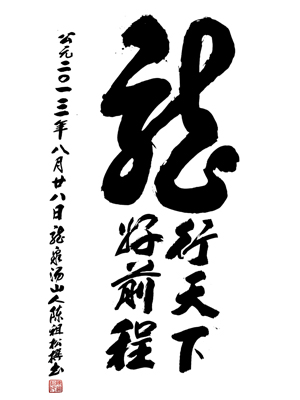 龍
行天下
好前程
公元二〇一三年八月廿八日龍泉汤山人陈祖松撰书